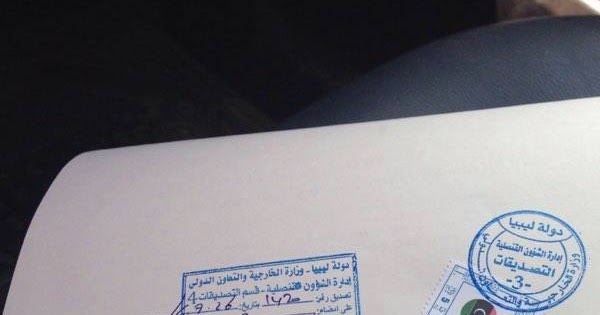 دولة ليبيا - وزارة الخارجية والتعاون الدولي
إدارة الشؤون القنصلية - قسم التصديقات 4
تصديق رقم: 1420 بتاريخ: 9.26
على إمضاء
دولة ليبيا
إدارة الشؤون القنصلية
التصديقات
-3-
وزارة الخارجية والتعاون الدولي